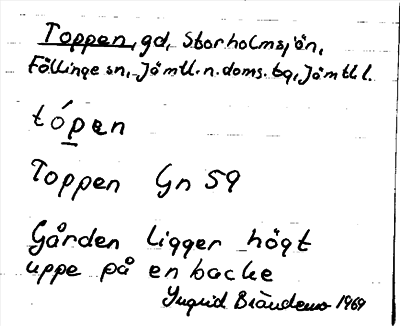 Toppen, gd, Storholmsjön,
Föllinge sn, Jämtl. n. doms. tg, Jämtl. l.
tópen
Toppen Gn 59
Gården ligger högt
uppe på en backe
Ingrid 1969